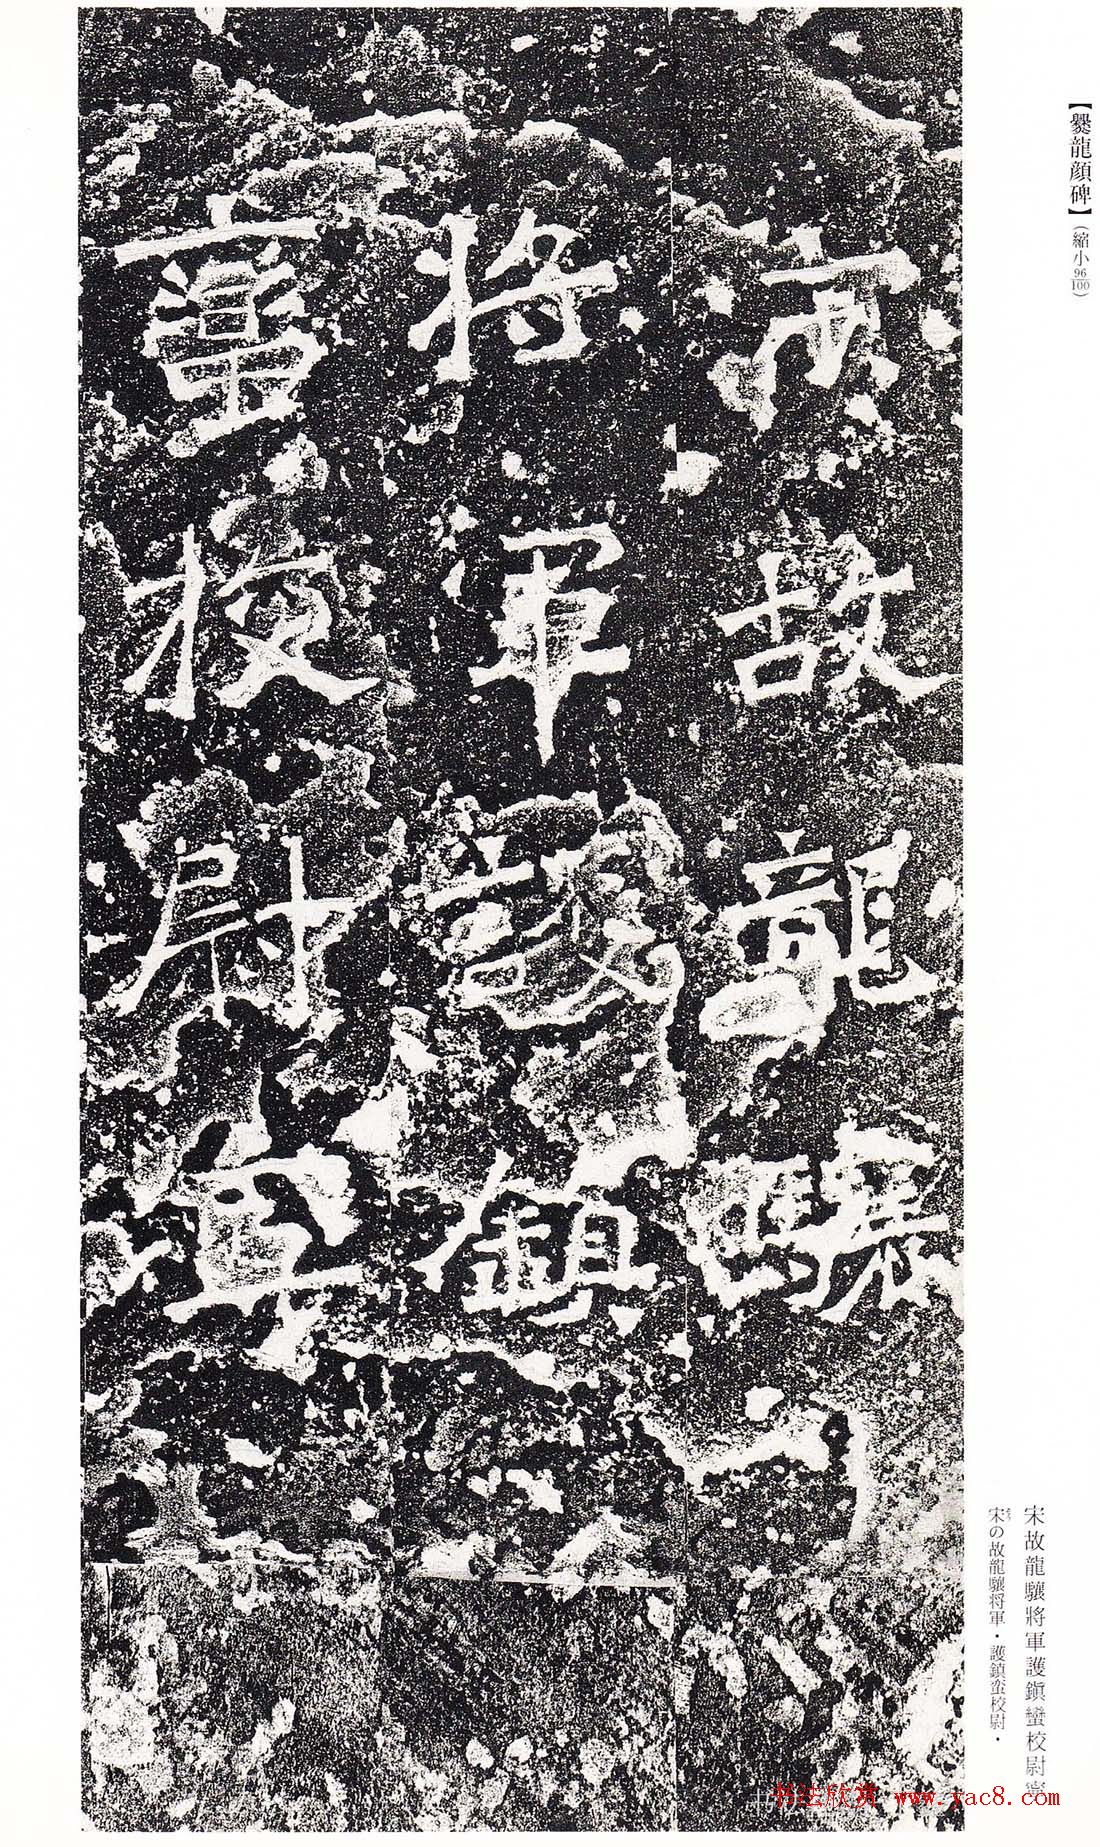 【爨龍顔碑】（縮小96/100）
宋故龍驤
將軍護鎮
蠻校尉寧
宋故龍驤將軍護鎮蠻校尉寧
宋の故龍驤将軍・護鎮蛮校尉・
书法欣赏 www.yac8.com